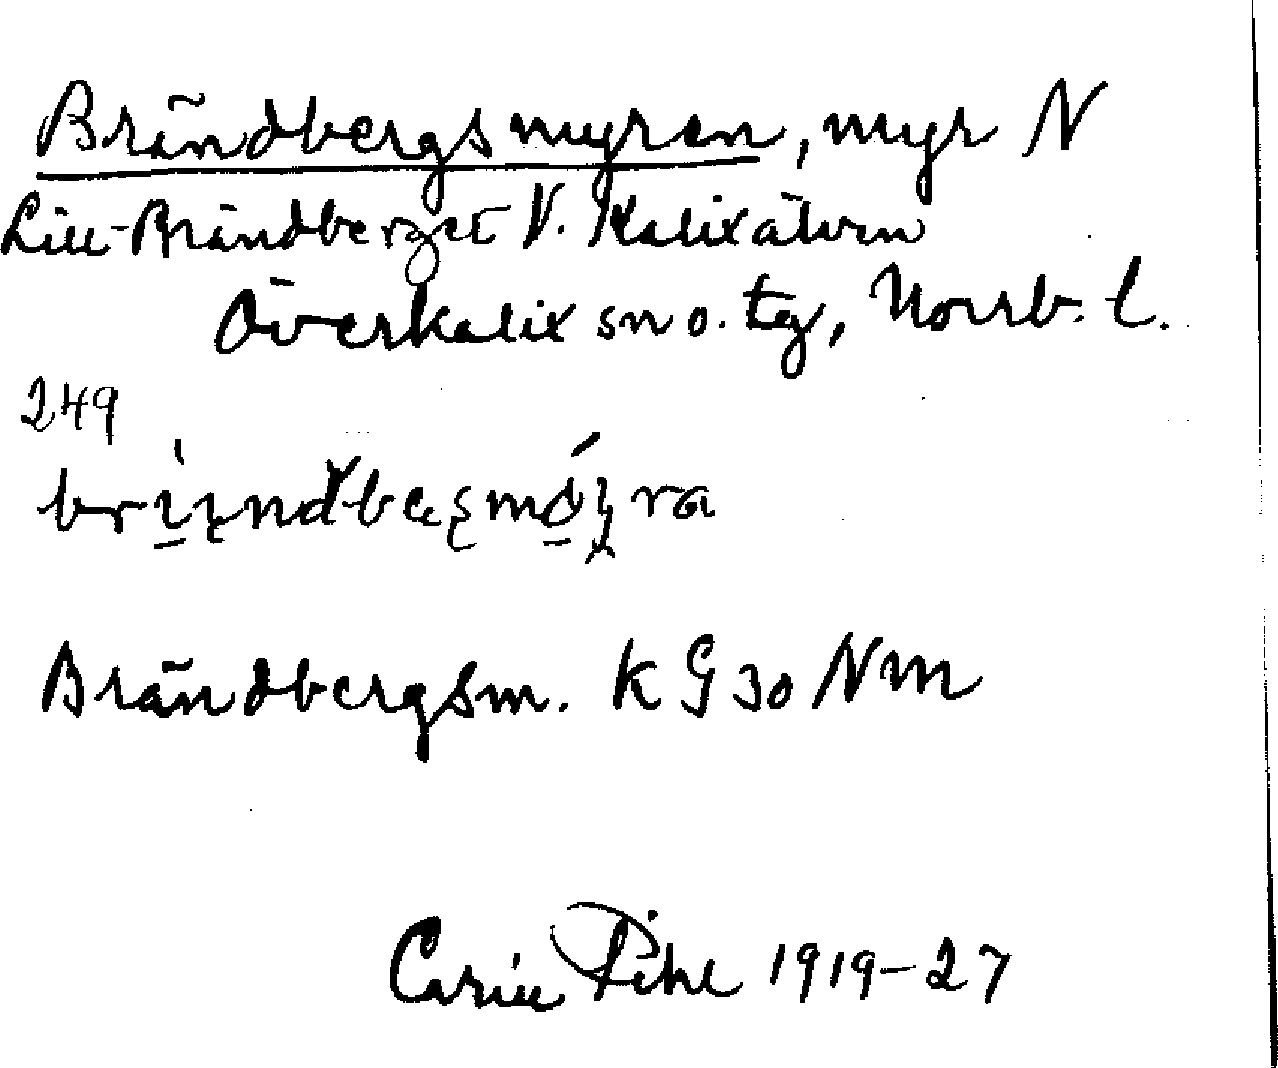 Brändbergsmyren, myr N
Lill-Brändberget V. Kalixälven
Överkalix sn o. tg, Norrb. l.
249
Brändbergsm. K G 30 Nm
Carin Pihl 1919-27